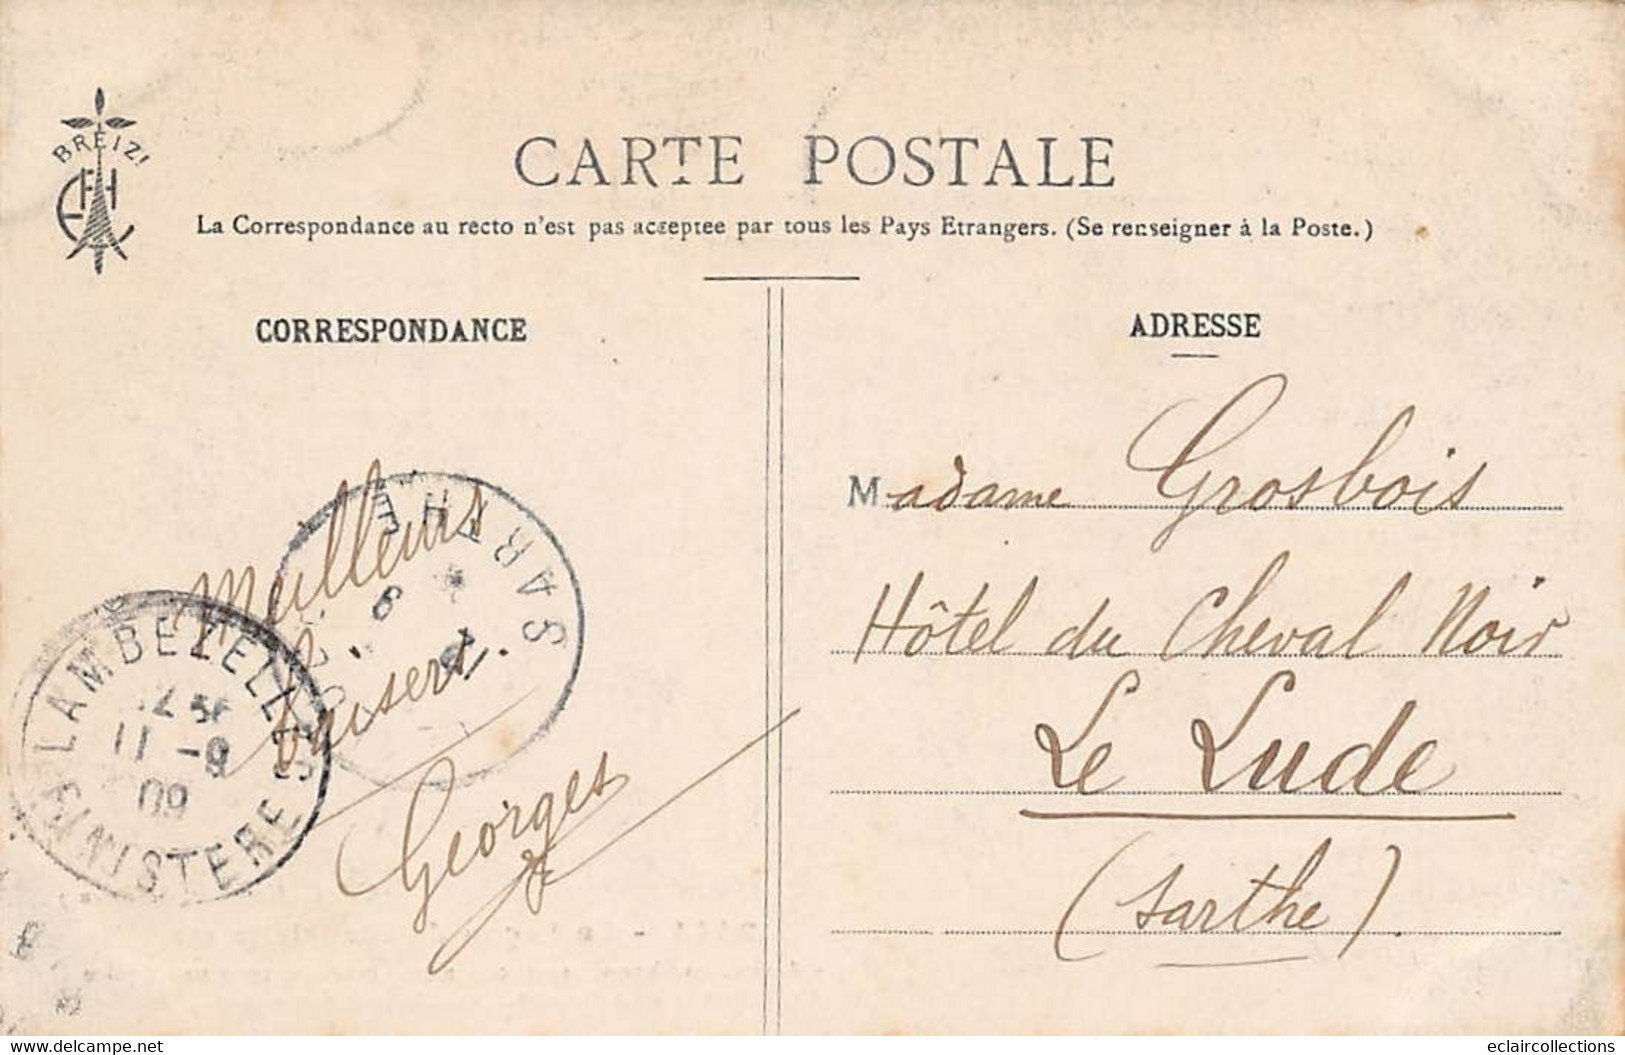 BREIZ!
EFHA
CARTE POSTALE
La Correspondance au recto n'est pas acceptee par tous les Pays Etrangers. (Se renseigner à la Poste.)
CORRESPONDANCE
Meilleurs
baisers.
Georges
SARTHE
LAMBEZELLEC
11 -9
09
FINISTERE
ADRESSE
Madame Grosbois
Hôtel du Cheval Noir
Le Lude
(Sarthe).
Delcampe.net
eclaircollections